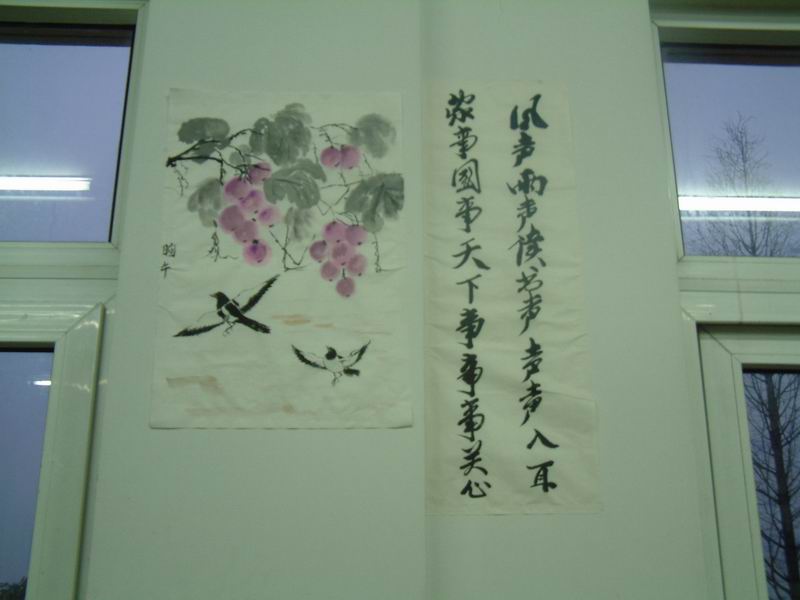 风声雨声读书声声声入耳
家事国事天下事事事关心